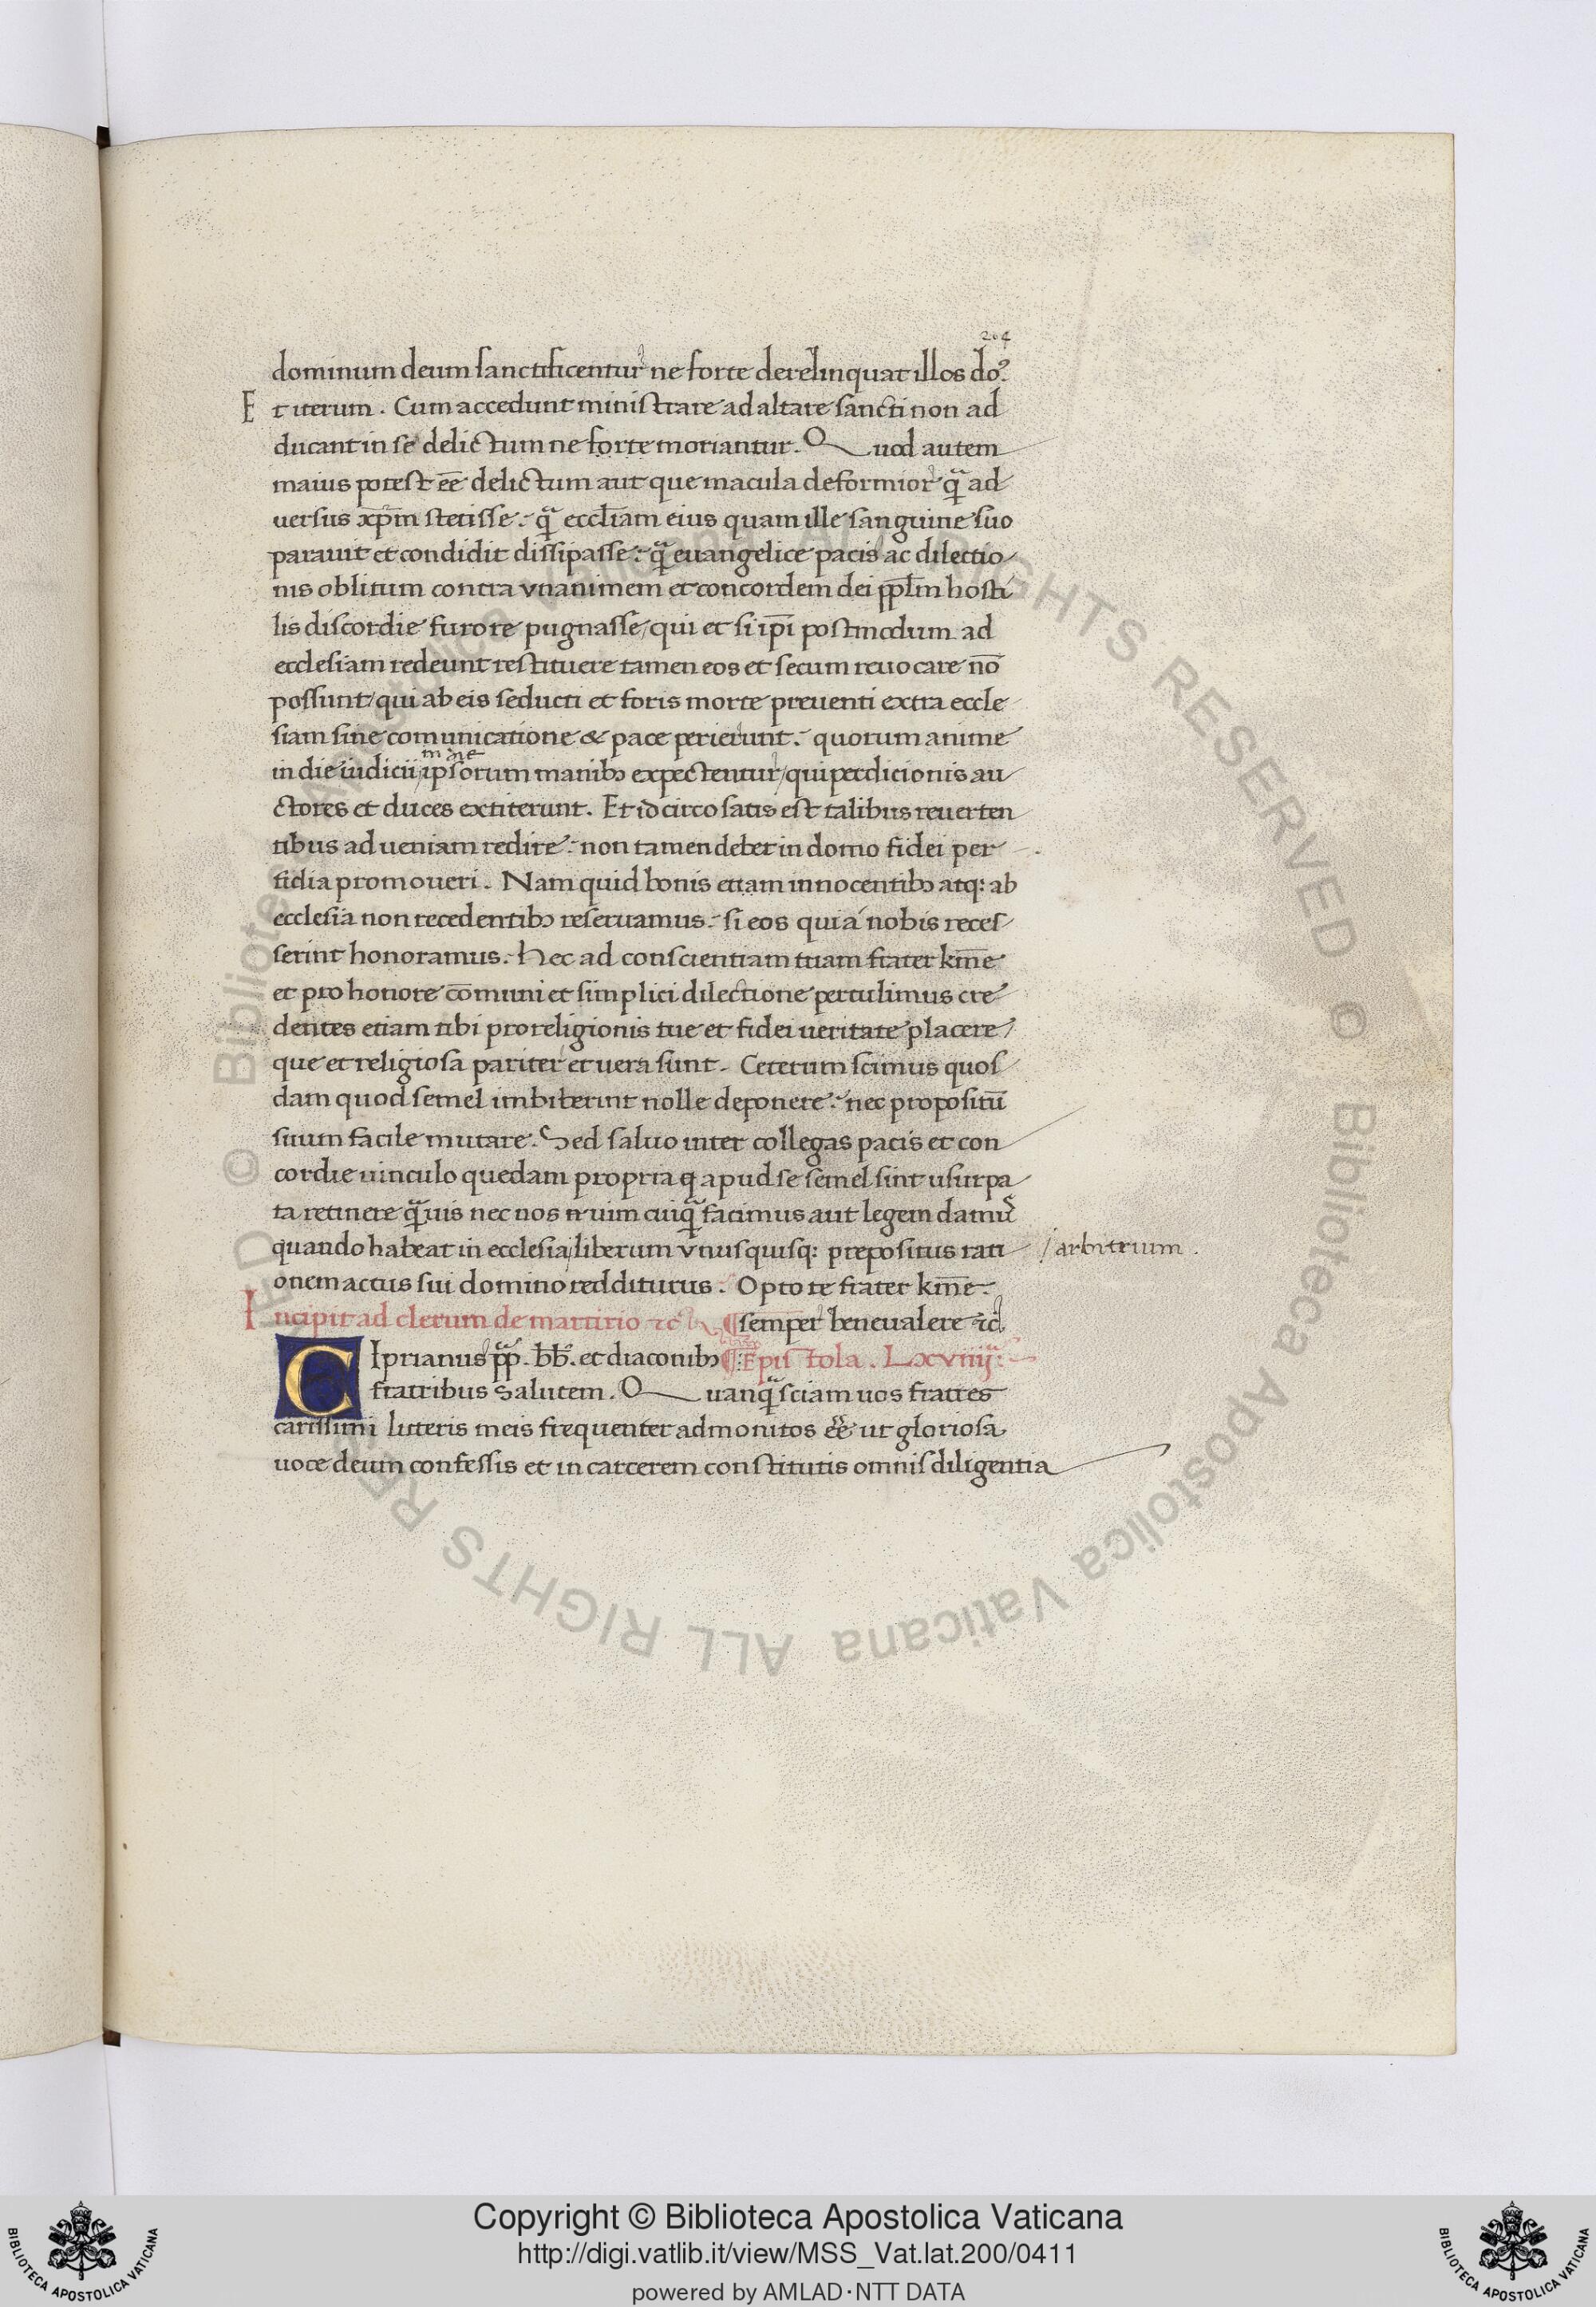 204
dominum deum sanctificentur ne forte derelinquat illos do?
Et iterum. Cum accedunt ministrare ad altare sancti non ad
ducant in se delictum ne forte moriantur. Quod autem
maius potest ee̅ delictum aut que macula deformior qᷓ ad
uersus xp̅m stetisse: qᷓ eccl̅iam eius quam ille sanguine suo
parauit et condidit dissipasse: qᷓ euangelice pacis ac dilectio
nis oblitum contra vnanimem et concordem dei pp̅lm hosti
lis discordie furore pugnasse/ qui et si ip̅i postmodum ad
ecclesiam redeunt restituere tamen eos et secum reuocare no̅
possunt/ qui ab eis seducti et foris morte preuenti extra eccle
siam sine comunicatione & pace perierunt: quorum anime
in die iudicii/ ipsorum manibꝫ expectentur/ qui perdicionis au
ctores et duces extiterunt. Et idcirco satis est talibus reuerten
tibus ad ueniam redire: non tamen debet in domo fidei per
fidia promoueri. Nam quid bonis etiam innocentibꝫ atqꝫ ab
ecclesia non recedentibꝫ reseruamus: si eos qui a nobis reces
serint honoramus. Hec ad conscientiam tuam frater km̅e
et pro honore co̅muni et simplici dilectione pertulimus cre
dentes etiam tibi pro religionis tue et fidei ueritate placere/
que et religiosa pariter et uera sunt. Ceterum scimus quos
dam quod semel imbiberint nolle deponere: nec propositu̅
suum facile mutare. Sed saluo inter collegas pacis et con
cordie uinculo quedam propria q apud se semel sint usurpa
ta retinere qᷓuis nec nos n uim cuiqᷓ facimus aut legem damꝰ
quando habeat in ecclesia/ liberum vnusquisqꝫ prepositus rati /arbitrium.
onem actus sui domino redditurus. Opto te frater km̅e
Incipit ad clerum de martirio ⁊c ¶ semper bene ualere ⁊c
Ciprianus pp̅. bb̅. et diaconibꝫ ¶ Epistola. Lxviiij:
fratribus Salutem. Quanqᷓ sciam uos fratres
carissimi litteris meis frequenter admonitos ee̅ ut gloriosa
uoce deum confessis et in carcerem constitutis omnis diligentia
Copyright © Biblioteca Apostolica Vaticana
http://digi.vatlib.it/view/MSS_Vat.lat.200/0411
powered by AMLAD·NTT DATA
BIBLIOTECA APOSTOLICA VATICANA
BIBLIOTECA APOSTOLICA VATICANA
© Biblioteca Apostolica Vaticana ALL RIGHTS RESERVED © Biblioteca Apostolica Vaticana ALL RIGHTS RESERVED